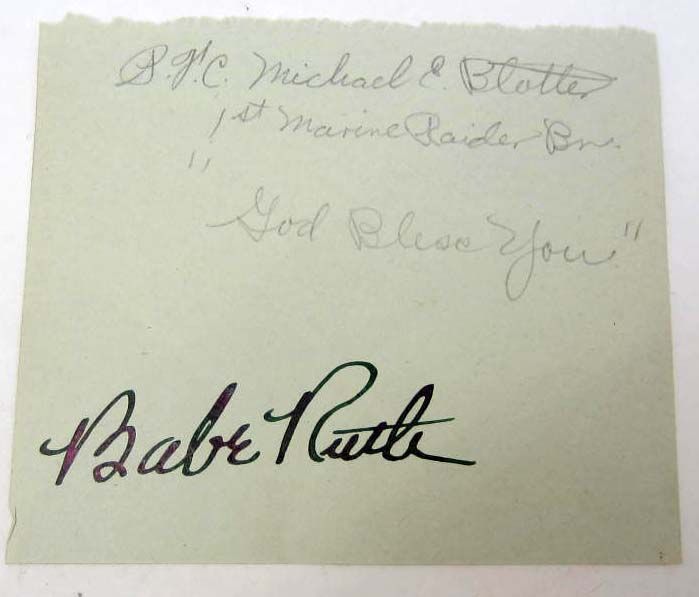 P.F.C. Michael E. Blotter
1st Marine Raider Bn.
"God Bless You"
Babe Ruth